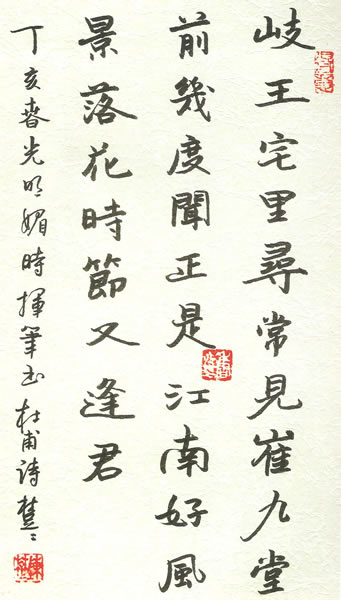 岐王宅里尋常見崔九堂
前幾度聞正是江南好風
景落花時節又逢君
丁亥春光明媚時揮筆书杜甫詩